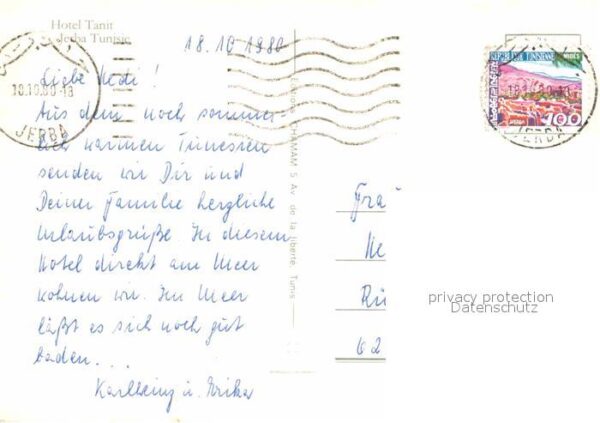 Hotel Tanit
Jerba Tunisie
18.10 1980
18.10.80-18
JERBA
Liebe Hedi!
Aus dem noch sommer-
lich warmen Tunesien
senden wir Dir und
Deiner Familie herzliche
Urlaubsgrüße. In diesem
Hotel direkt am Meer
wohnen wir. Im Meer
läßt es sich noch gut
baden...
Karlheinz u. Erika
CHAMAM 5 Av de la liberté Tunis
REPUBLIQUE TUNISIENNE
100
JERBA
Fra
He
Rü
62
privacy protection
Datenschutz